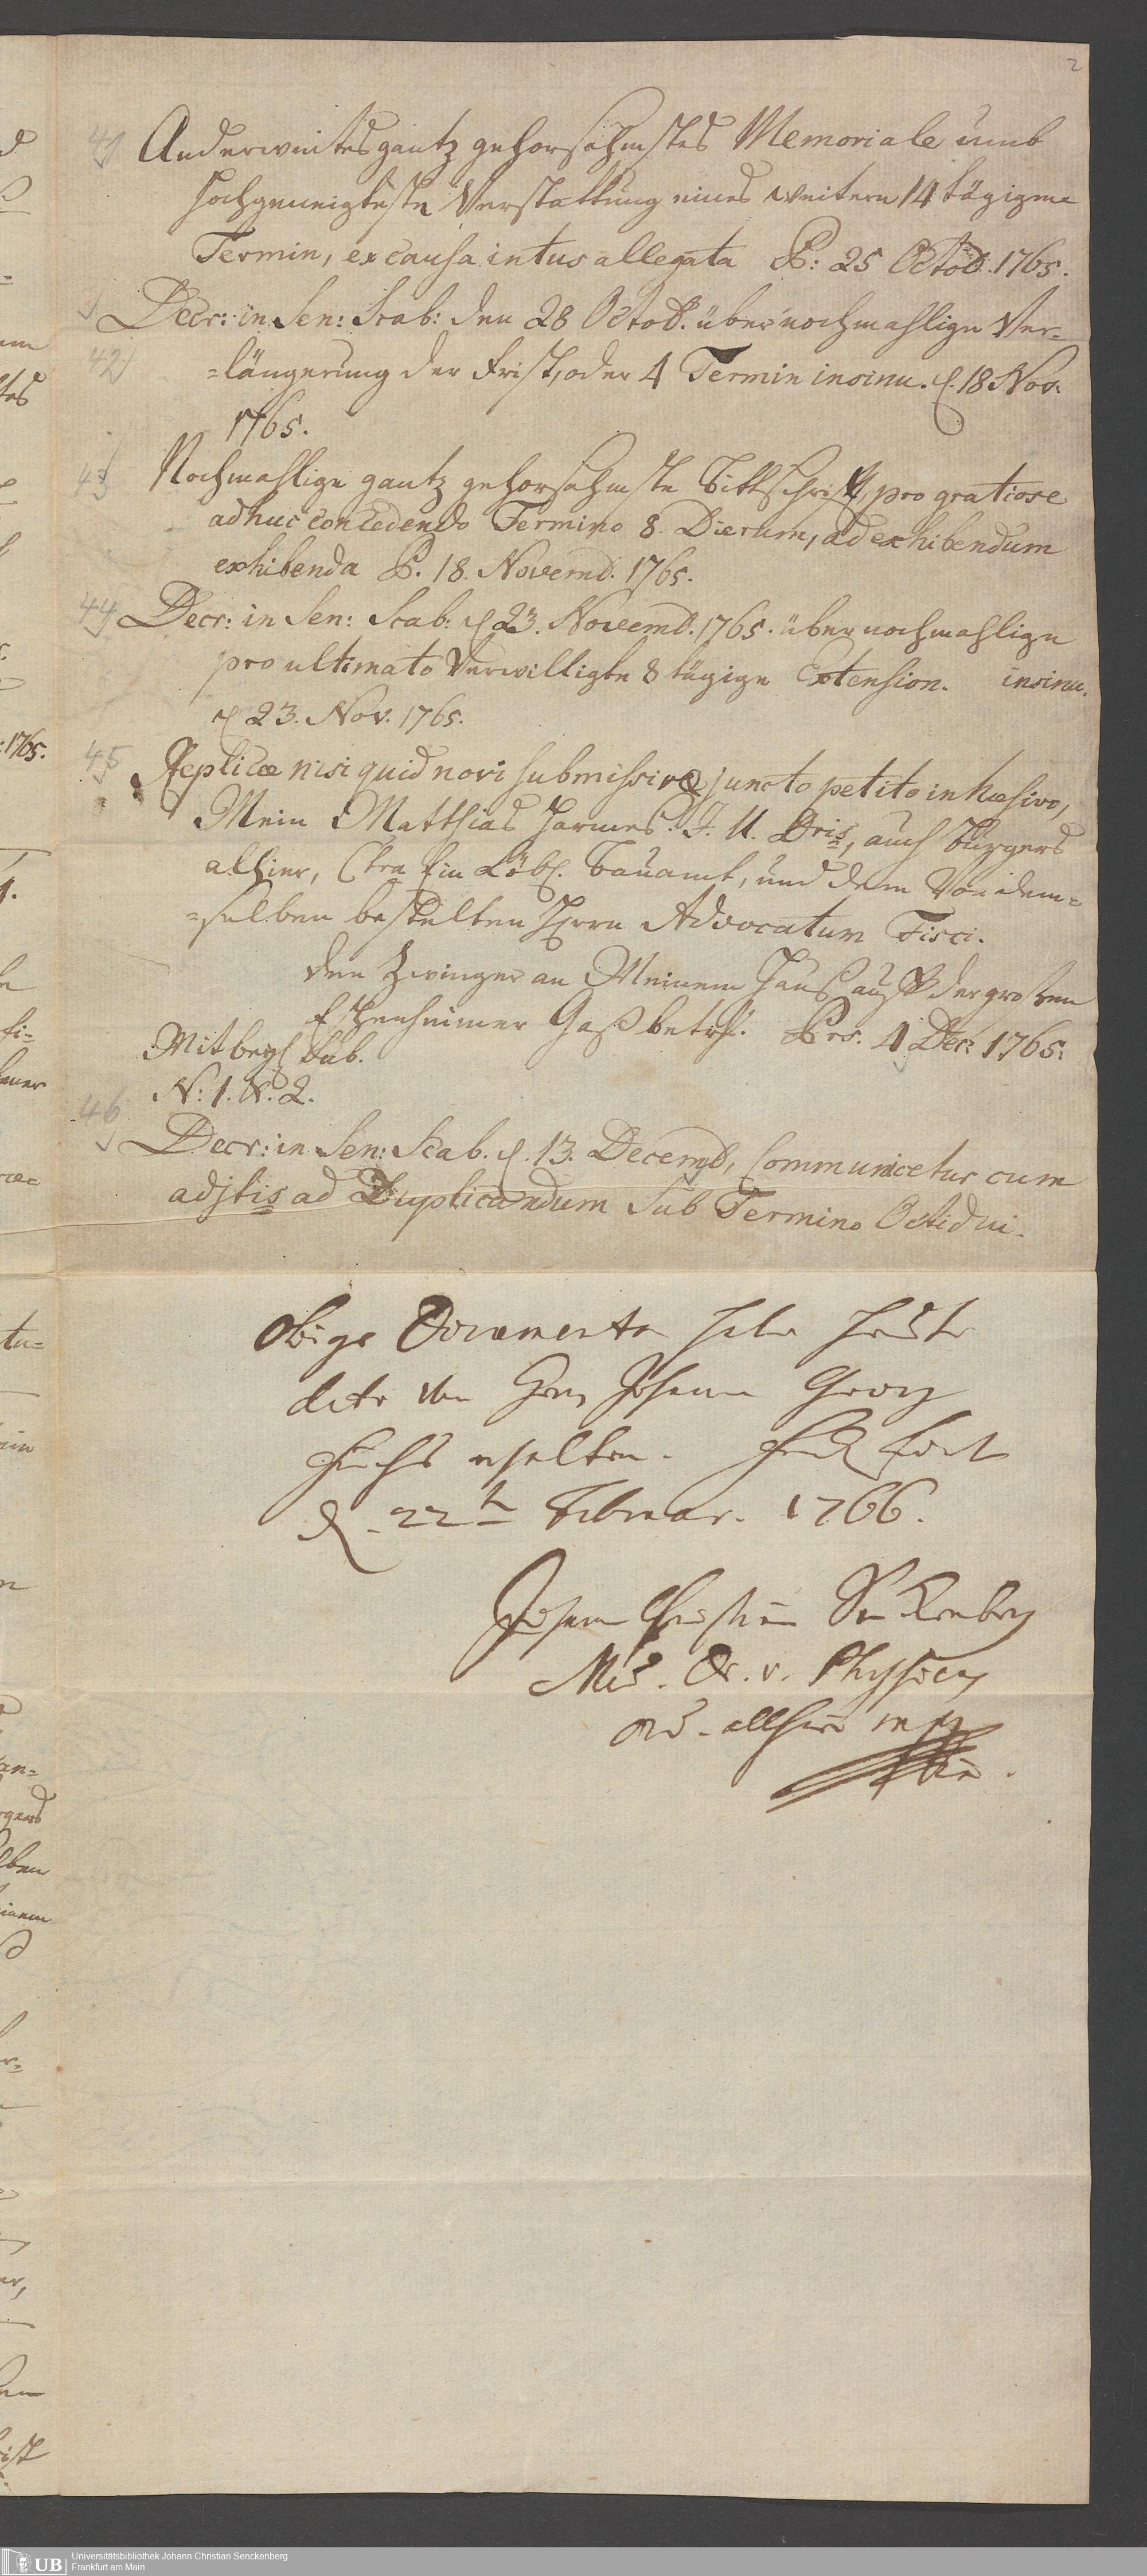 2
41 Anderweites gantz gehorsahmstes Memoriale umb
hochgeneigteste Verstattung eines weitern 14 tägigen
Termin, ex causa intus allegata P: 25 Octob. 1765.
Decr: in Sen: Scab: den 28 Octob. über nochmahlige Ver-
42 -längerung der Frist, oder 4 Termin insinu. d. 18 Nov.
1765.
43 Nochmahlige gantz gehorsahmste Bittschrifft, pro gratiose
adhuc concedendo Termino 8. Dierum, ad exhibendum
exhibenda P. 18. Novemb. 1765.
44 Decr: in Sen: Scab: d 23. Novemb. 1765. über nochmahlige
pro ultimato Verwilligte 8 tägige Extension. insinu.
d 23. Nov. 1765.
45 Replicæ nisi quid novi submissivæ juncto petito inhæsivo,
Mein Matthias Harmes. J. U. Dris, auch Burgers
alhier, Ctra Ein Löbl. Bauamt, und dem Von dem-
-selben bestelten Herrn Advocatum Fisci.
den Zwinger an Meinem Hauß auff der grosen
Eschenheimer Gaß betrf. Prs. 4 Dec: 1765.
Mit beyl Sub.
N: 1. N. 2.
46 Decr: in Sen: Scab. d. 13. Decemb, Communicetur cum
adjtis ad Duplicandum Sub Termino Octidui.
Obige Documenta habe heute
dato von Hrn Johann Georg
Fuchs erhalten. Franckfort
d. 22ten Februar. 1766.
Johann Christian Senckenberg
Med. Dr. u. Physicus
ord. allhier mpp
d
tes
: 1765.
1.
fi-
tu-
an-
lben
UB Universitätsbibliothek Johann Christian Senckenberg
Frankfurt am Main